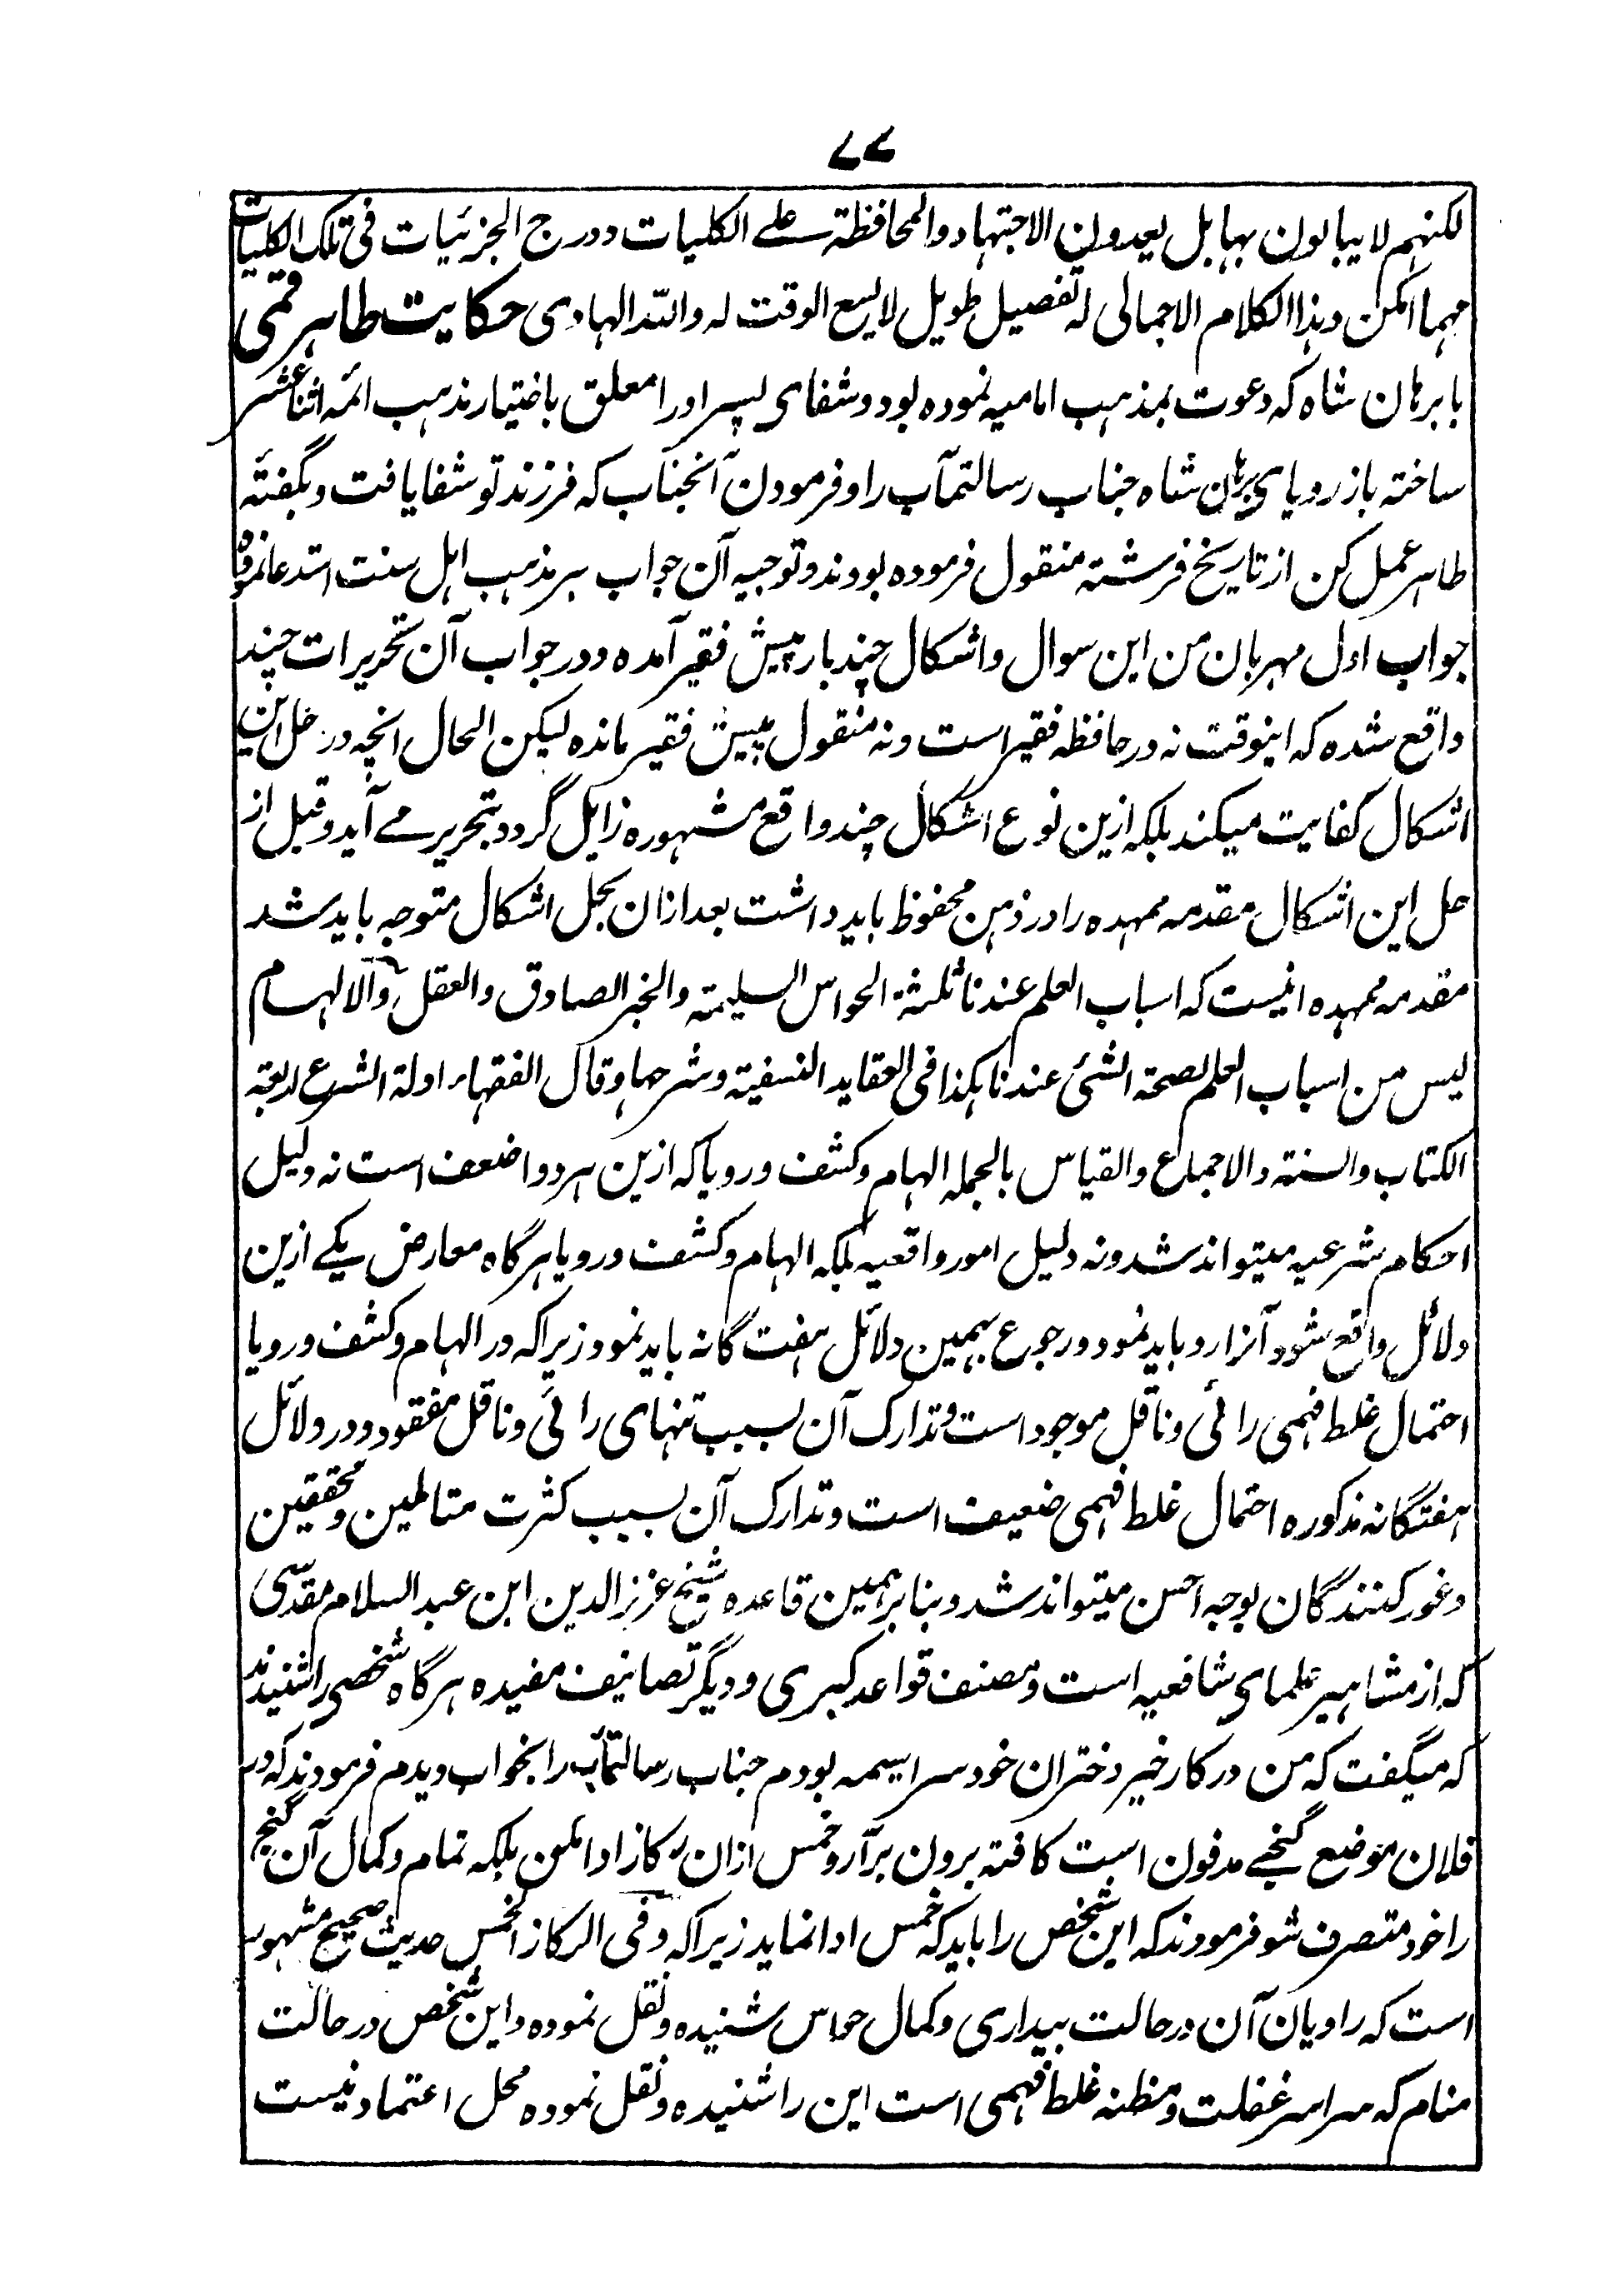 ۷۷
لکنهم لا یبالون بها بل یعدون الاجتهاد والمحافظة علے الکلیات ودرج الجزئیات فی تلک الکلیات
مهما امکن وهذا الکلام الاجمالی له تفصیل طویل لا یسع الوقت له والله الهادی حکایت طاهر قمی
با برهان شاه که دعوت بمذهب امامیه نموده بود و شفای پسر او را معلق باختیار مذهب ائمه اثنا عشر
ساخته باز رویای برهان شاه جناب رسالتمآب را و فرمودن آنجناب که فرزند تو شفا یافت و بگفتهٔ
طاهر عمل کن از تاریخ فرشته منقول فرموده بودند و توجیه آن جواب بر مذهب اهل سنت استدعا نموده
جواب اول مهربان من این سوال و اشکال چند بار پیش فقیر آمده و در جواب آن تحریرات چند
واقع شده که اینوقت نه در حافظه فقیر است و نه منقول پیش فقیر مانده لیکن الحال انچه در حل این
اشکال کفایت میکند بلکه ازین نوع اشکال چند واقع مشهوره زایل گردد بتحریر مے آید و قبل از
حل این اشکال مقدمه ممهده را در ذهن محفوظ باید داشت بعد ازان بحل اشکال متوجه باید شد
مقدمه ممهده اینست که اسباب العلم عندنا ثلثة الحواس السلیمة والخبر الصادق والعقل والالهام
لیس من اسباب العلم لصحة الشئ عندنا هکذا فی العقاید النسفیة وشرحها وقال الفقهاء ادلة الشرع اربعة
الکتاب والسنة والاجماع والقیاس بالجمله الهام و کشف و رویا که ازین هر دو اضعف است نه دلیل
احکام شرعیه میتواند شد و نه دلیل امور واقعیه بلکه الهام و کشف و رویا هرگاه معارض یکے ازین
دلائل واقع شود آنرا رد باید نمود و رجوع بهمین دلائل هفت گانه باید نمود زیرا که در الهام و کشف و رویا
احتمال غلط فهمی رائی و ناقل موجود است و تدارک آن بسبب تنهای رائی و ناقل مفقود و در دلائل
هفتگانه مذکوره احتمال غلط فهمی ضعیف است و تدارک آن بسبب کثرت متاملین و محققین
و غور کنندگان بوجه احسن میتواند شد و بنا بر همین قاعده شیخ عزیز الدین ابن عبد السلام مقدسی
که از مشاهیر علمای شافعیه است و مصنف قواعد کبری و دیگر تصانیف مفیده هرگاه شخصی را شنیدند
که میگفت که من در کار خیر دختران خود سراسیمه بودم جناب رسالتمآب را بخواب دیدم فرمودند که در
فلان موضع گنجے مدفون است کافته برون برآر و خمس ازان رکاز ادا مکن بلکه تمام و کمال آن گنج
را خود متصرف شو فرمودند که این شخص را باید که خمس ادا نماید زیرا که و فی الرکاز الخمس حدیث صحیح مشهور
است که راویان آن در حالت بیداری و کمال حواس شنیده و نقل نموده و این شخص در حالت
منام که سراسر غفلت و مظنه غلط فهمی است این را شنیده و نقل نموده محل اعتماد نیست